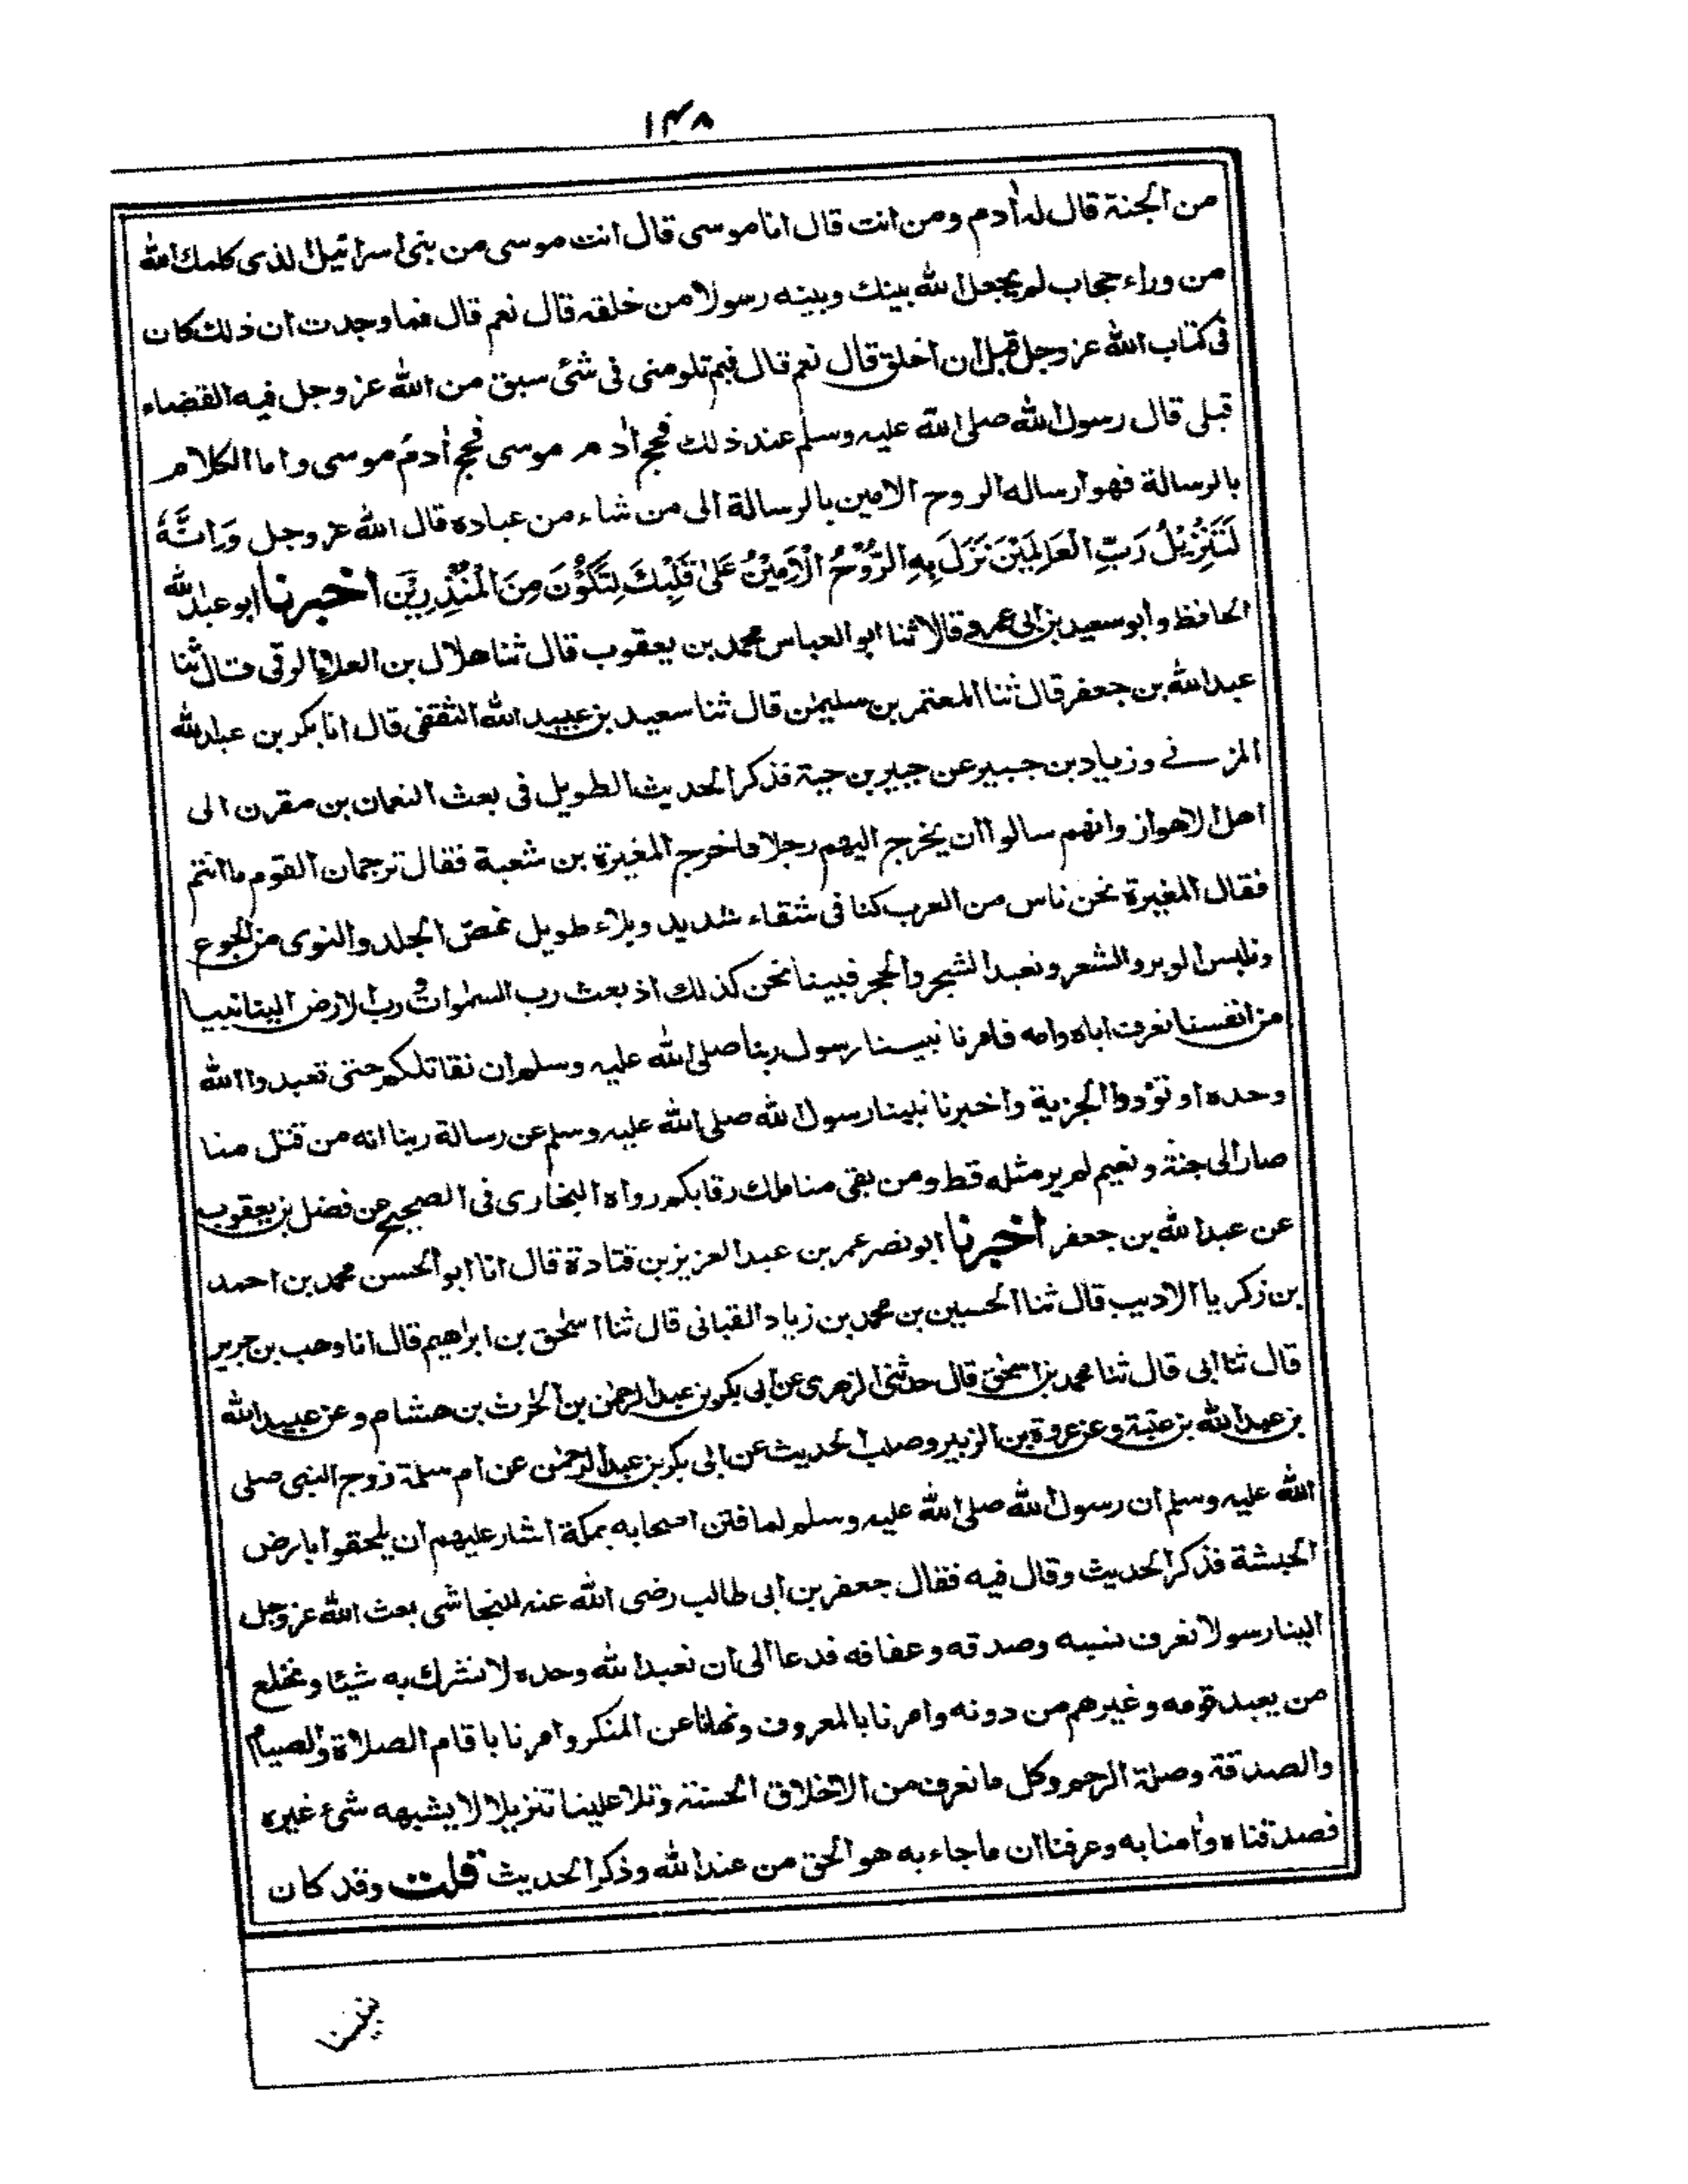 ١٤٨
من الجنة قال له اٰدم ومن انت قال انا موسى قال انت موسى من بنى اسرائيل الذى كلمك الله
من وراء حجاب لم يجعل الله بينك وبينه رسولا من خلقه قال نعم قال فما وجدت ان ذلك كان
فى كتاب الله عز وجل قبل ان اخلق قال نعم قال فبم تلومنى فى شئ سبق من الله عز وجل فيه القضاء
قبلى قال رسول الله صلى الله عليه وسلم عند ذلك فحج اٰدم موسى فحج اٰدمُ موسى واما الكلام
بالرسالة فهو ارساله الروح الامين بالرسالة الى من شاء من عباده قال الله عز وجل وَاِنَّهٗ
لَتَنْزِيْلُ رَبِّ الْعَالَمِيْنَ نَزَلَ بِهِ الرُّوْحُ الْاَمِيْنُ عَلىٰ قَلْبِكَ لِتَكُوْنَ مِنَ الْمُنْذِرِيْنَ اخبرنا ابو عبد الله
الحافظ وابو سعيد بن ابى عمرو قالا ثنا ابو العباس محمد بن يعقوب قال ثنا هلال بن العلاء الرقى قال ثنا
عبد الله بن جعفر قال ثنا المعتمر بن سليمٰن قال ثنا سعيد بن عبيد الله الثقفى قال انا بكر بن عبد الله
المزنے وزياد بن جبير عن جبير بن حية فذكر الحديث الطويل فى بعث النعمان بن مقرن الى
اهل الاهواز وانهم سالوا ان يخرج اليهم رجلا فاخرج المغيرة بن شعبة فقال ترجمان القوم ما انتم
فقال المغيرة نحن ناس من العرب كنا فى شقاء شديد وبلاء طويل نمص الجلد والنوى من الجوع
ونلبس الوبر والشعر ونعبد الشجر والحجر فبينا نحن كذلك اذ بعث رب السمٰوات ورب الارض الينا نبيا
من انفسنا نعرف اباه وامه فامرنا نبينا رسول ربنا صلى الله عليه وسلم ان نقاتلكم حتى تعبدوا الله
وحده او تؤدوا الجزية واخبرنا نبينا رسول الله صلى الله عليه وسلم عن رسالة ربنا انه من قتل منا
صار الى جنة ونعيم لم ير مثله قط ومن بقى منا ملك رقابكم رواه البخارى فى الصحيح عن فضل بن يعقوب
عن عبد الله بن جعفر اخبرنا ابو نصر عمر بن عبد العزيز بن قتادة قال انا ابو الحسن محمد بن احمد
بن زكريا الاديب قال ثنا الحسين بن محمد بن زياد القبانى قال ثنا اسحٰق بن ابراهيم قال انا وهب بن جرير
قال ثنا ابى قال ثنا محمد بن اسحٰق قال حدثنى الزهرى عن ابى بكر بن عبد الرحمٰن بن الحٰرث بن هشام وعن عبيد الله
بن عبد الله بن عتبة وعن عروة بن الزبير وصلب الحديث عن ابى بكر بن عبد الرحمٰن عن ام سلمة زوج النبى صلى
الله عليه وسلم ان رسول الله صلى الله عليه وسلم لما فتن اصحابه بمكة اشار عليهم ان يلحقوا بارض
الحبشة فذكر الحديث وقال فيه فقال جعفر بن ابى طالب رضى الله عنه للنجاشى بعث الله عز وجل
الينا رسولا نعرف نسبه وصدقه وعفافه فدعا الى ان نعبد الله وحده لا نشرك به شيئا ونخلع
من يعبد قومه وغيرهم من دونه وامرنا بالمعروف ونهانا عن المنكر وامرنا باقام الصلاة والصيام
والصدقة وصلة الرحم وكل ما نعرف من الاخلاق الحسنة وتلا علينا تنزيلا لا يشبهه شئ غيره
فصدقناه واٰمنا به وعرفنا ان ما جاء به هو الحق من عند الله وذكر الحديث قلت وقد كان